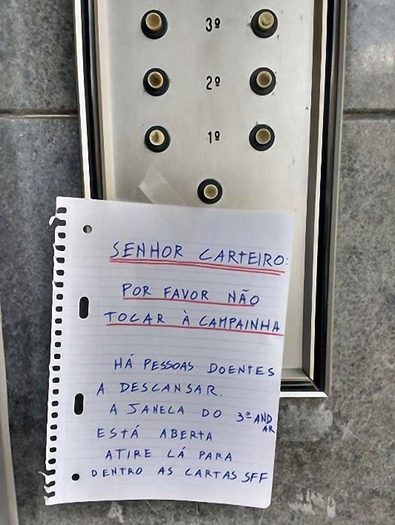 3º
2º
1º
SENHOR CARTEIRO:
POR FAVOR NÃO
TOCAR À CAMPAINHA
HÁ PESSOAS DOENTES
A DESCANSAR.
A JANELA DO 3º AND
AR
ESTÁ ABERTA
ATIRE LÁ PARA
DENTRO AS CARTAS SFF